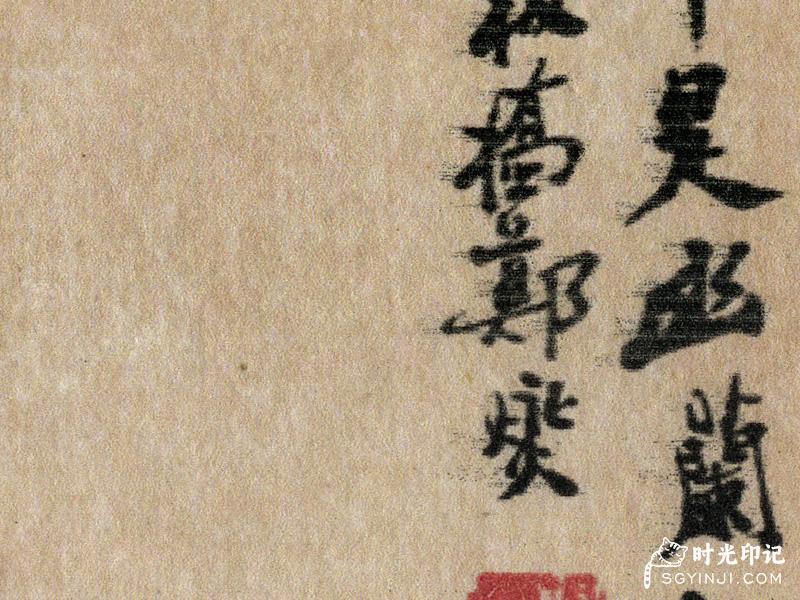 是幽蘭
板橋鄭燮
时光印记
SGYINJI.COM